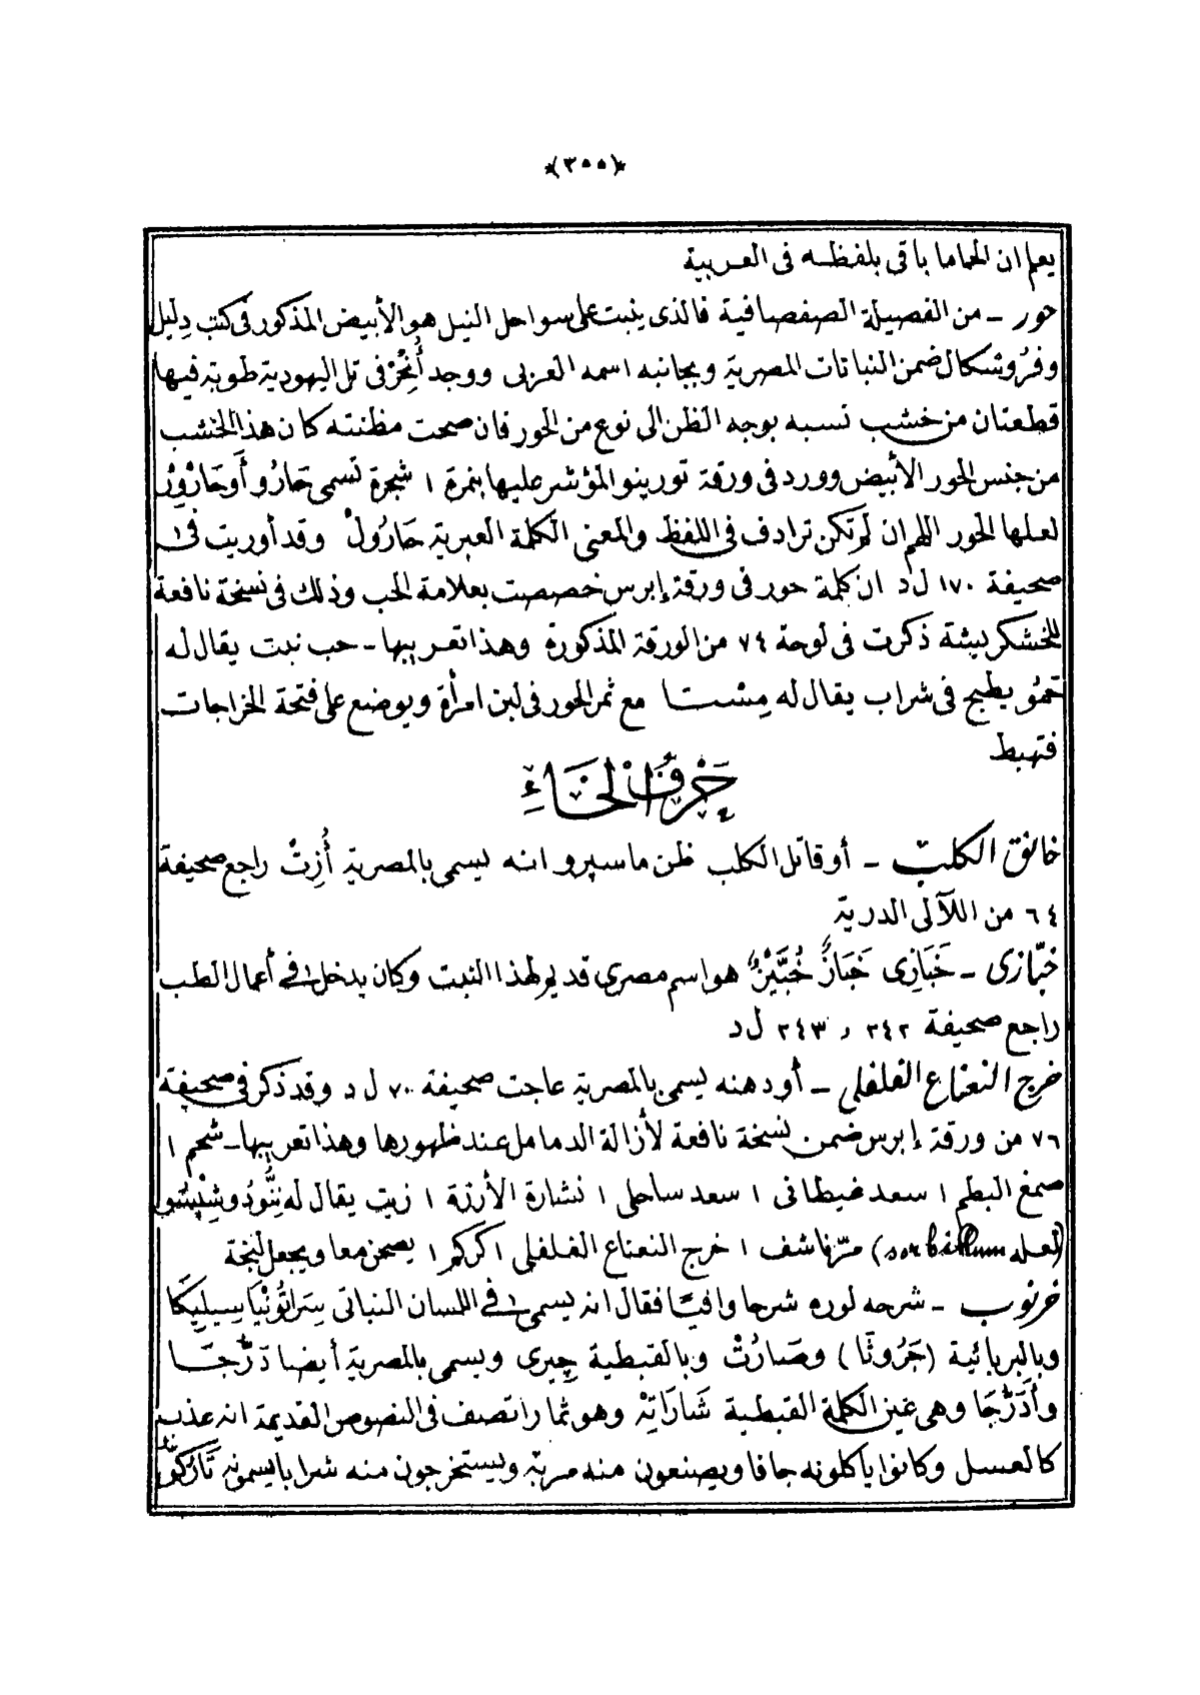 *(٣٥٥)*
يعلم ان الحماما باقى بلفظه فى العربية
حور ـ من الفصيلة الصفصافية فالذى ينبت على سواحل النيل هو الأبيض المذكور فى كتب دليل
وفرُوشكال ضمن النباتات المصرية وبجانبه اسمه العربى ووجد أُنْجُرْ فى تل اليهودية طوبة فيها
قطعتان من خشب نسبه بوجه الظن الى نوع من الحور فان صحت مظنته كان هذا الخشب
من جنس الحور الأبيض وورد فى ورقة تورينو المؤشر عليها بنمرة ١ شجرة تسمى حَارُو أوحَارْوِرْ
لعلها الحور اللهم ان لم تكن ترادف فى اللفظ والمعنى الكلمة العبرية حَارُولْ وقد أوريت فى
صحيفة ١٧٠ ل د ان كلمة حور فى ورقة إبرس خصصت بعلامة الحب وذلك فى نسخة نافعة
للخشكريشة ذكرت فى لوحة ٧٤ من الورقة المذكورة وهذا تعريبها ـ حب نبت يقال له
يطبخ فى شراب يقال له مِسْتا مع ثمر الحور فى لبن امرأة ويوضع على فتحة الخراجات
فتهبط
حَرْفُ الْخَاءِ
خانق الكلب ـ أو قاتل الكلب ظن ماسپرو انه يسمى بالمصرية أُزِتْ راجع صحيفة
٦٤ من اللآلى الدرية
خبّازى ـ خَبَازِى خَبَازٌ خُبَّيْزٌ هو اسم مصرى قديم لهذا النبت وكان يدخل فى أعمال الطب
راجع صحيفة ٢٤٢ ر ٢٤٣ ل د
خرج النعناع الفلفلى ـ أو دهنه يسمى بالمصرية عاجت صحيفة ٧٠ ل د وقد ذكر فى صحيفة
٧٦ من ورقة إبرس ضمن نسخة نافعة لأزالة الدمامل عند ظهورها وهذا تعريبها ـ شحم ١
صمغ البطم ١ سعد غيطانى ١ سعد ساحلى ١ نشارة الأرزة ١ زيت يقال له
(لعله) مرّ ناشف ١ خرج النعناع الفلفلى ١ كركم ١ يصحن معا ويجعل لبخة
خرنوب ـ شرحه لوره شرحا وافيًا فقال انه يسمى فى اللسان النباتى سِرَاتُونْيَا سِيلِيكَا
وبالبربائية (جَرُوتَا) وصَارُتْ وبالقبطية چِيرى ويسمى بالمصرية أيضا دَرَّجَا
وأَدَرَّجَا وهى عين الكلمة القبطية شَارَاتِهْ وهو ثمار اتصف فى النصوص القديمة انه عذب
كالعسل وكانوا يأكلونه جافا ويصنعون منه مربة ويستخرجون منه شرابا يسمونه